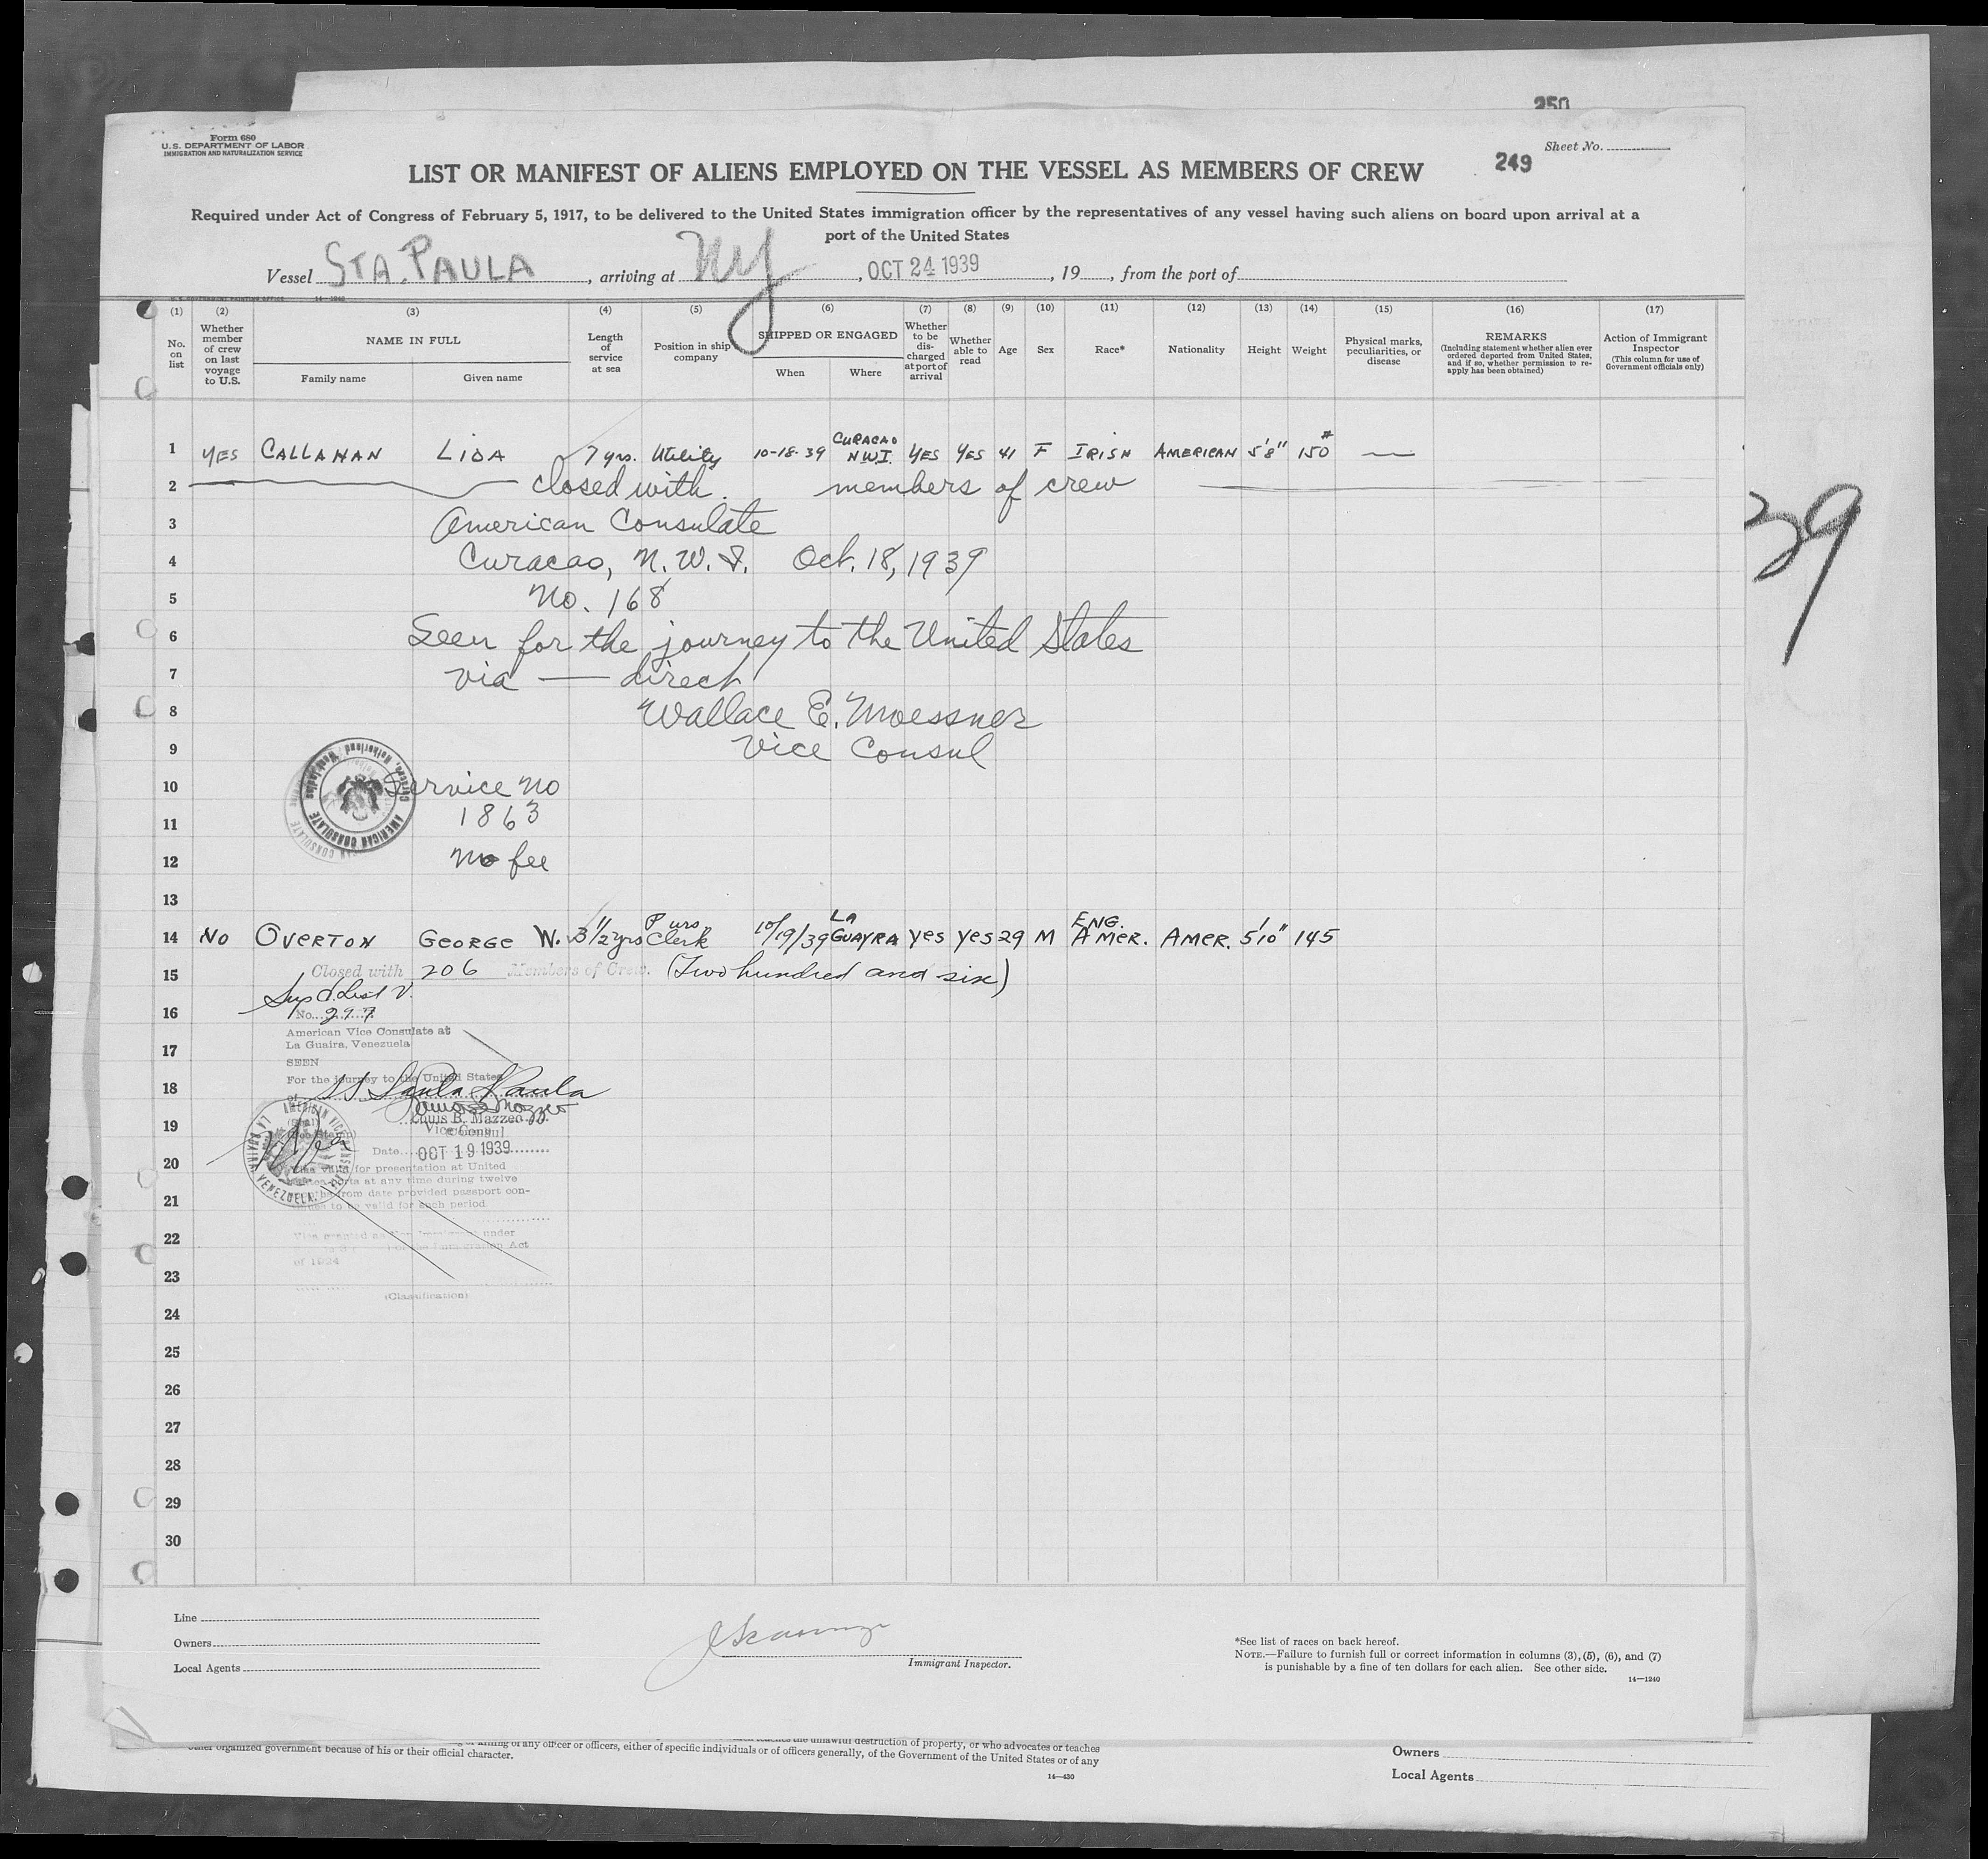 250
Form 680
U.S. DEPARTMENT OF LABOR
IMMIGRATION AND NATURALIZATION SERVICE
Sheet No.
249
LIST OR MANIFEST OF ALIENS EMPLOYED ON THE VESSEL AS MEMBERS OF CREW
Required under Act of Congress of February 5, 1917, to be delivered to the United States immigration officer by the representatives of any vessel having such aliens on board upon arrival at a
port of the United States
Vessel STA. PAULA , arriving at NY , OCT 24 1939 , 19 , from the port of
(1) (2) (3) (4) (5) (6) (7) (8) (9) (10) (11) (12) (13) (14) (15) (16) (17)
No. on list
Whether member of crew on last voyage to U.S.
NAME IN FULL
Family name Given name
Length of service at sea
Position in ship's company
SHIPPED OR ENGAGED
When Where
Whether to be discharged at port of arrival
Whether able to read
Age Sex Race* Nationality Height Weight
Physical marks, peculiarities, or disease
REMARKS
(Including statement whether alien ever ordered deported from United States, and if so, whether permission to re-apply has been obtained)
Action of Immigrant Inspector
(This column for use of Government officials only)
1 YES CALLAHAN LIDA 7 yrs. Utility 10-18-39 CURACAO N.W.I. YES YES 41 F IRISH AMERICAN 5'8" 150# —
2 closed with members of crew
3 American Consulate
4 Curacao, N.W.I. Oct. 18, 1939
5 No. 168
6 Seen for the journey to the United States
7 via — direct
8 Wallace E. Moessner
9 Vice Consul
10 Service No
11 1863
12 No fee
AMERICAN CONSULATE
13
14 NO OVERTON GEORGE W. 3 1/2 yrs Purs. Clerk 10/19/39 LA GUAYRA yes yes 29 M ENG. AMER. AMER. 5'10" 145
15 Closed with 206 Members of Crew. (Two hundred and six)
Sup'd. List V.
16 No. 297
American Vice Consulate at
17 La Guaira, Venezuela
SEEN
For the journey to the United States
18 SS Santa Paula
19 Louis B. Mazzeo
Vice Consul
Date OCT 19 1939
20 for presentation at United
at any time during twelve
from date provided passport con-
21 to be valid for such period
22 Visa granted as under
Immigration Act
of 1924
23
(Classification)
24
25
26
27
28
29
30
39
Line
Owners
Local Agents
Immigrant Inspector.
*See list of races on back hereof.
NOTE.—Failure to furnish full or correct information in columns (3), (5), (6), and (7)
is punishable by a fine of ten dollars for each alien. See other side.
14—1240
of any officer or officers, either of specific individuals or of officers generally, of the Government of the United States or of any
other organized government because of his or their official character.
destruction of property, or who advocates or teaches
14—430
Owners
Local Agents